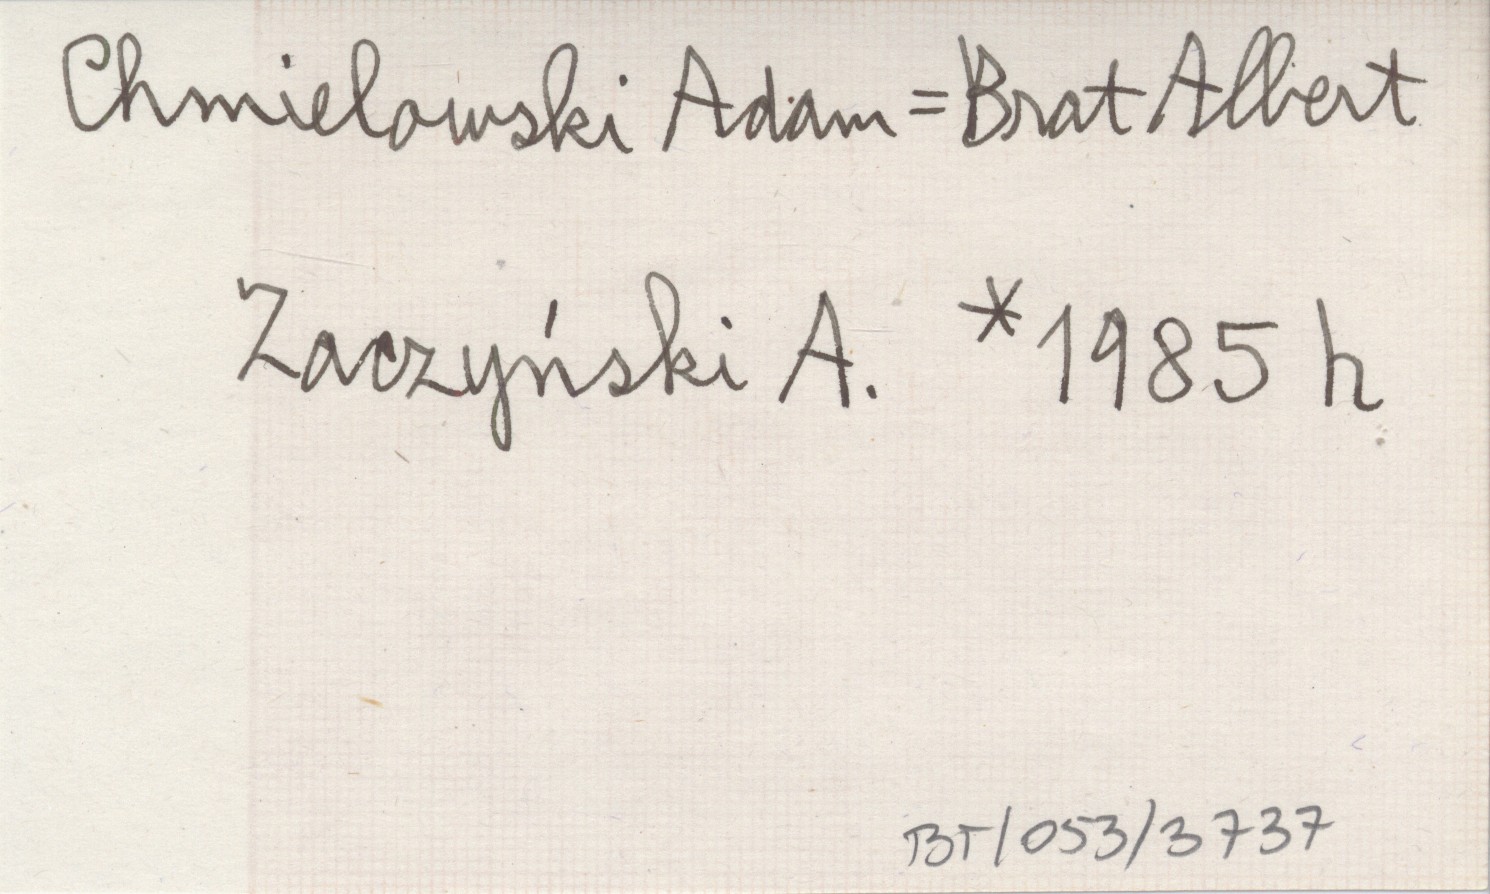 Chmielowski Adam = Brat Albert
Zaczyński A. *1985 h
BT/053/3737